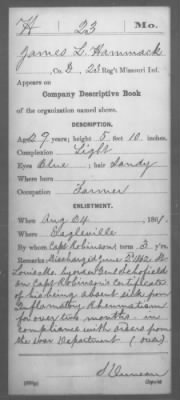 H 23 Mo.
James L. Hammack
Co. G, 23 Reg't Missouri Inf.
Appears on
Company Descriptive Book
of the organization named above.
DESCRIPTION.
Age 29 years; height 5 feet 10 inches.
Complexion Light
Eyes Blue; hair Sandy
Where born
Occupation Farmer
ENLISTMENT.
When Aug 24, 1861.
Where Eagleville
By whom Capt Robinson; term 3 y'rs.
Remarks: Discharged June 2" 1862 St
Louis Mo. by order Genl Schofield
on Capt Robinson's Certificate
of his being absent sick from
Inflamatory Rheumatism
for over two months - in
compliance with orders from
the War Department (over)
Duncan
Copyist.